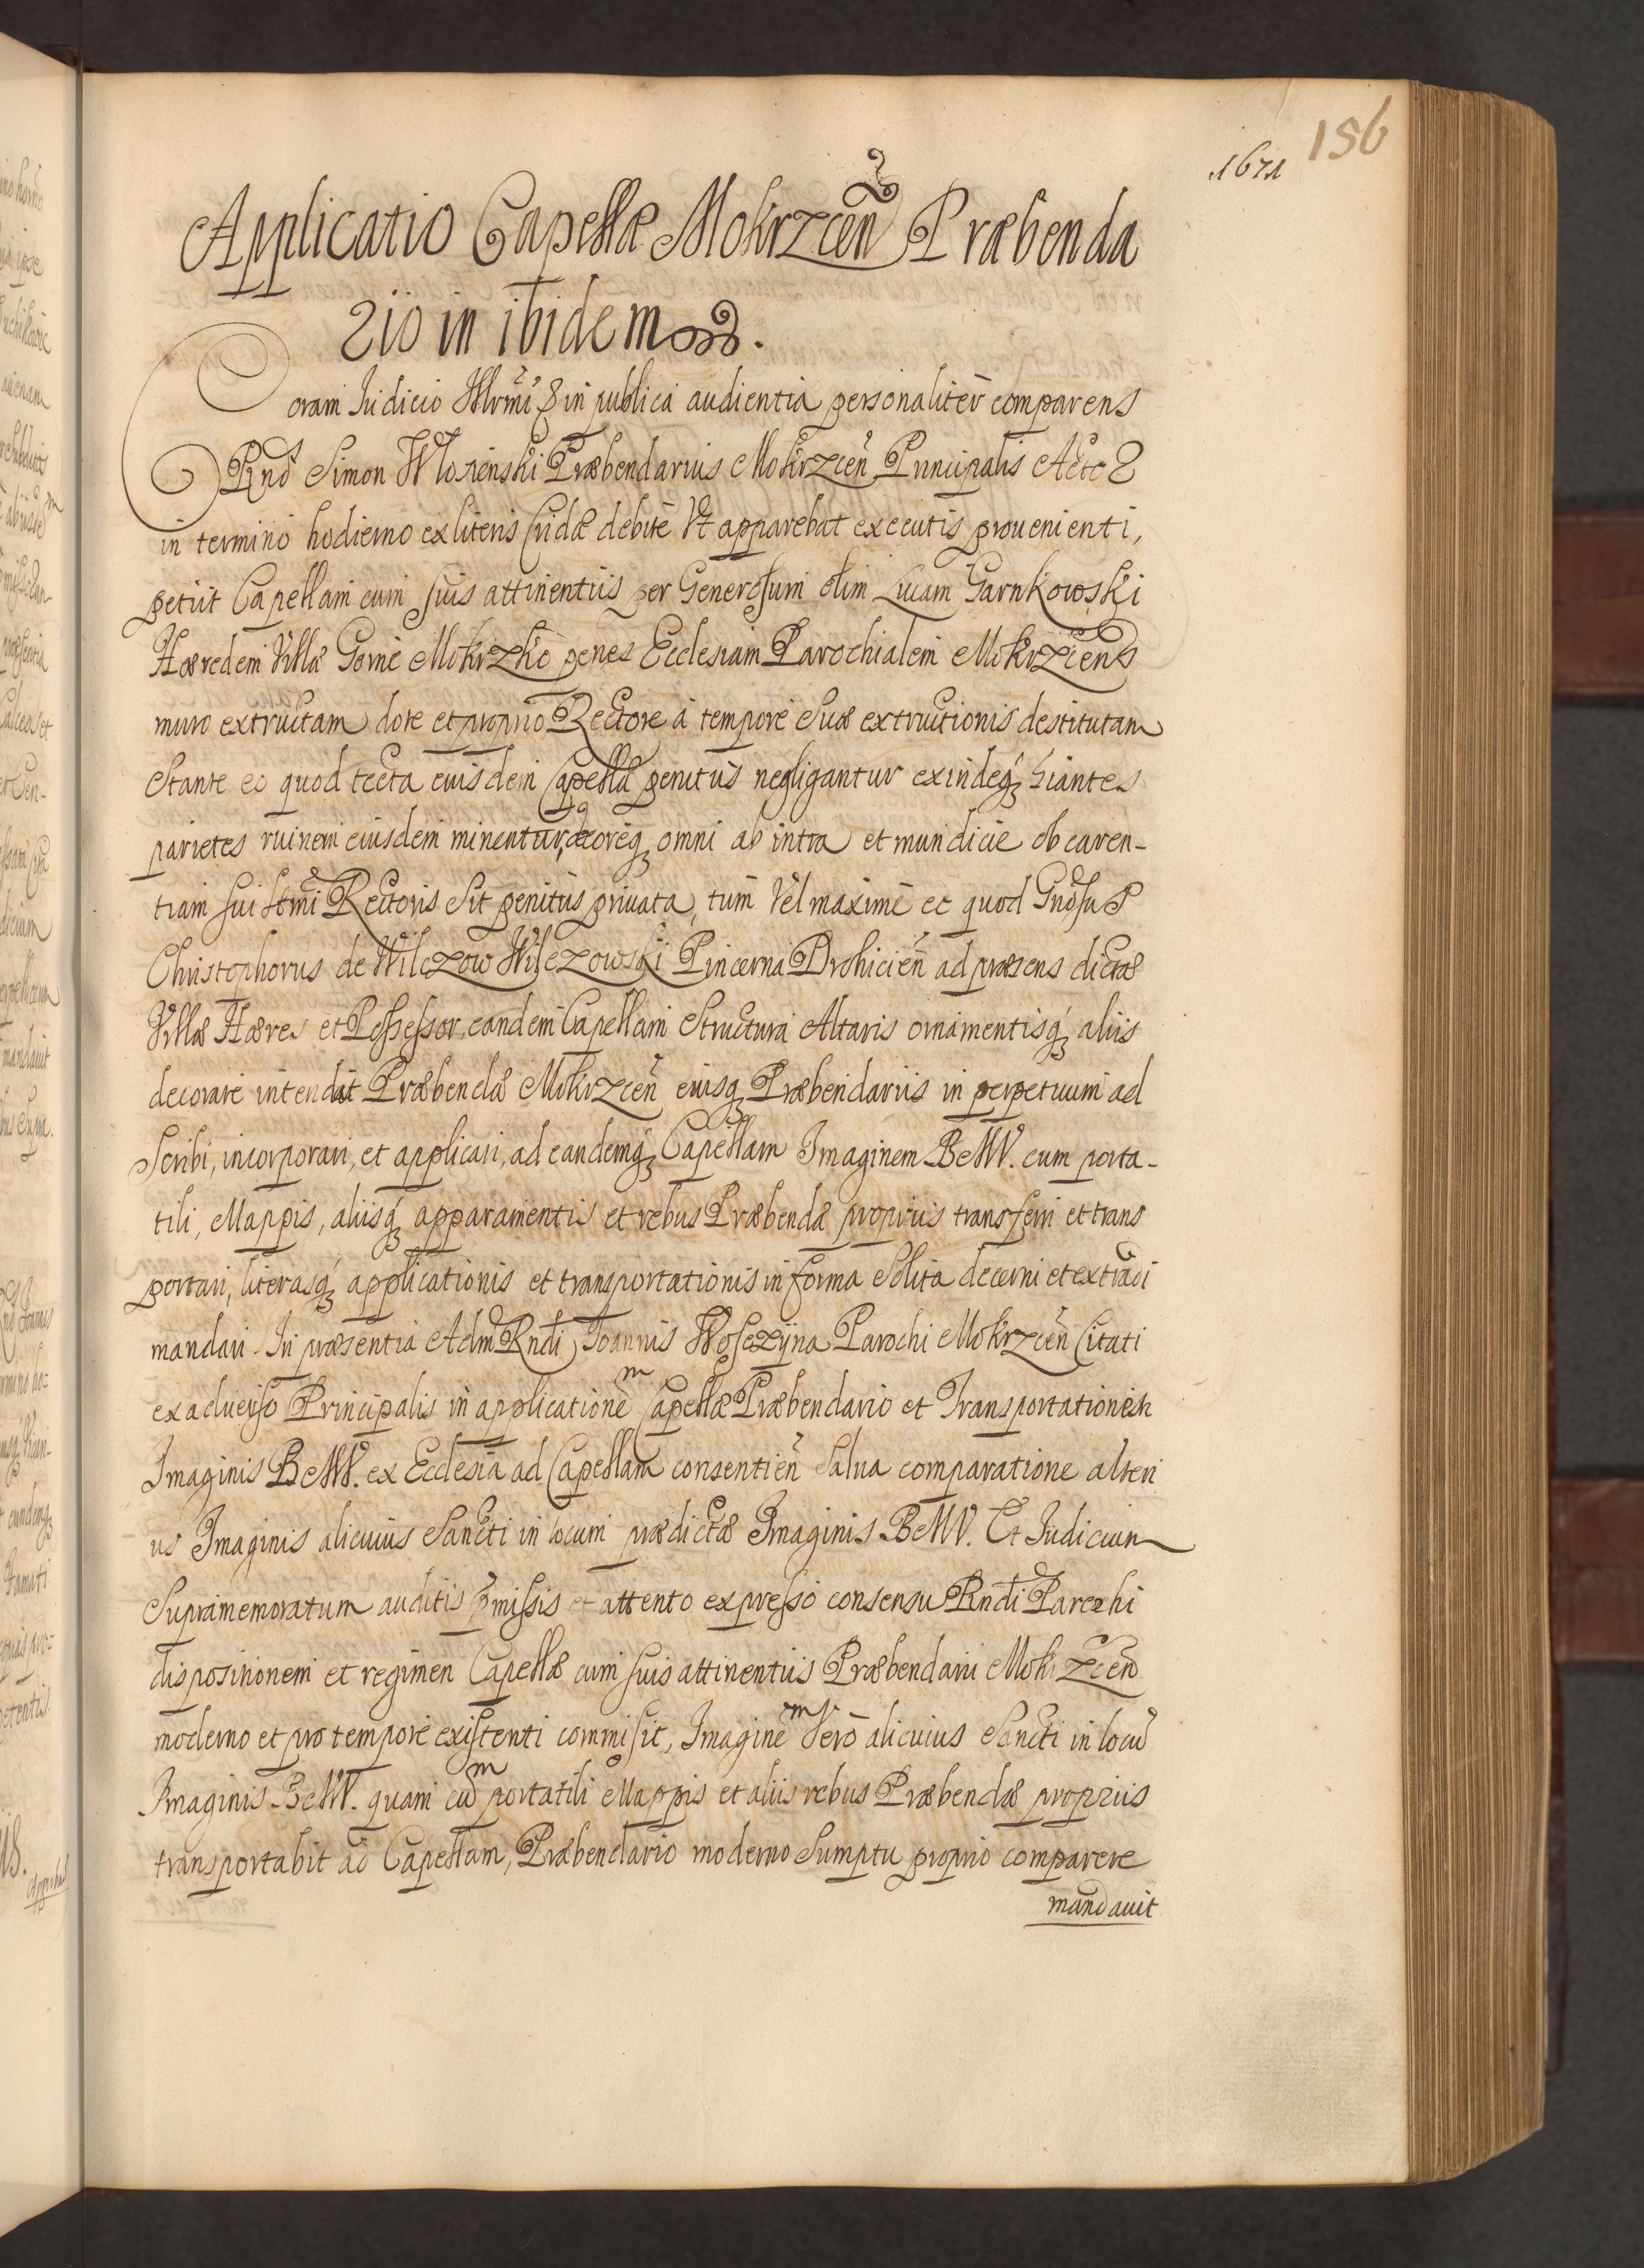 156
1671
Applicatio Capellæ Mokrzcen̄ Præbenda
rio in ibidem.
Coram Iudicio Illrmi & in publica audientia personaliter comparens
Rnd̄s Simon Wlosienski Præbendarius Mokrzcen̄ Principalis Actor
in termino hodierno ex literis Cridæ debite Vt apparebat executis prouenienti,
petiit Capellam cum suis attinentiis per Generosum olim Lucam Garnkowski
Hæredem Villæ Gorne Mokrzko penes Ecclesiam Parochialem Mokrzcens
muro extructam dote et proprio Rectore á tempore Suæ extructionis destitutam
Stante eo quod tecta eiusdem Capellæ penitus negligantur exindeq́ hiantes
parietes ruinam eiusdem minentur, decoreq́ omni ab intra et mundicie ob caren-
tiam sui Rectoris Sit penitus priuata, tum Vel maxime ec quod Gnosus
Christophorus de Wilczow Wilczowski Pincerna Drohicien̄ ad præsens dictæ
Villæ Hæres et Possessor, eandem Capellam Structura Altaris ornamentisq́ aliis
decorare intendat Præbendæ Mokrzcen̄ eiusq́ Præbendariis in perpetuum ad
Scribi, incorporari, et applicari, ad eandemq́ Capellam Imaginem BMV. cum porta-
tili, Mappis, aliisq́ apparamentis et rebus Præbendæ propriis transferri et trans
portari, literasq́ applicationis et transportationis in forma Solita decerni et extradi
mandari. In præsentia Adm Rndi Ioannis Wosczyna Parochi Mokrzcen̄ Citati
ex aduerso Principalis in applicationem Capellæ Præbendario et Transportationem
Imaginis BMV. ex Ecclesia ad Capellam consentien̄ Salua comparatione alteri
us Imaginis alicuius Sancti in locum prædictæ Imaginis BMV. Et Iudicium
Supramemoratum auditis p̄missis et attento expresso consensu Rndi Parochi
dispositionem et regimen Capellæ cum suis attinentiis Præbendario Mokrzcen̄
moderno et pro tempore existenti commisit, Imaginem Vero alicuius Sancti in locū
Imaginis BMV. quam cum portatili Mappis et aliis rebus Præbendæ propriis
transportabit ad Capellam, Præbendario moderno Sumptu proprio comparere
mandauit